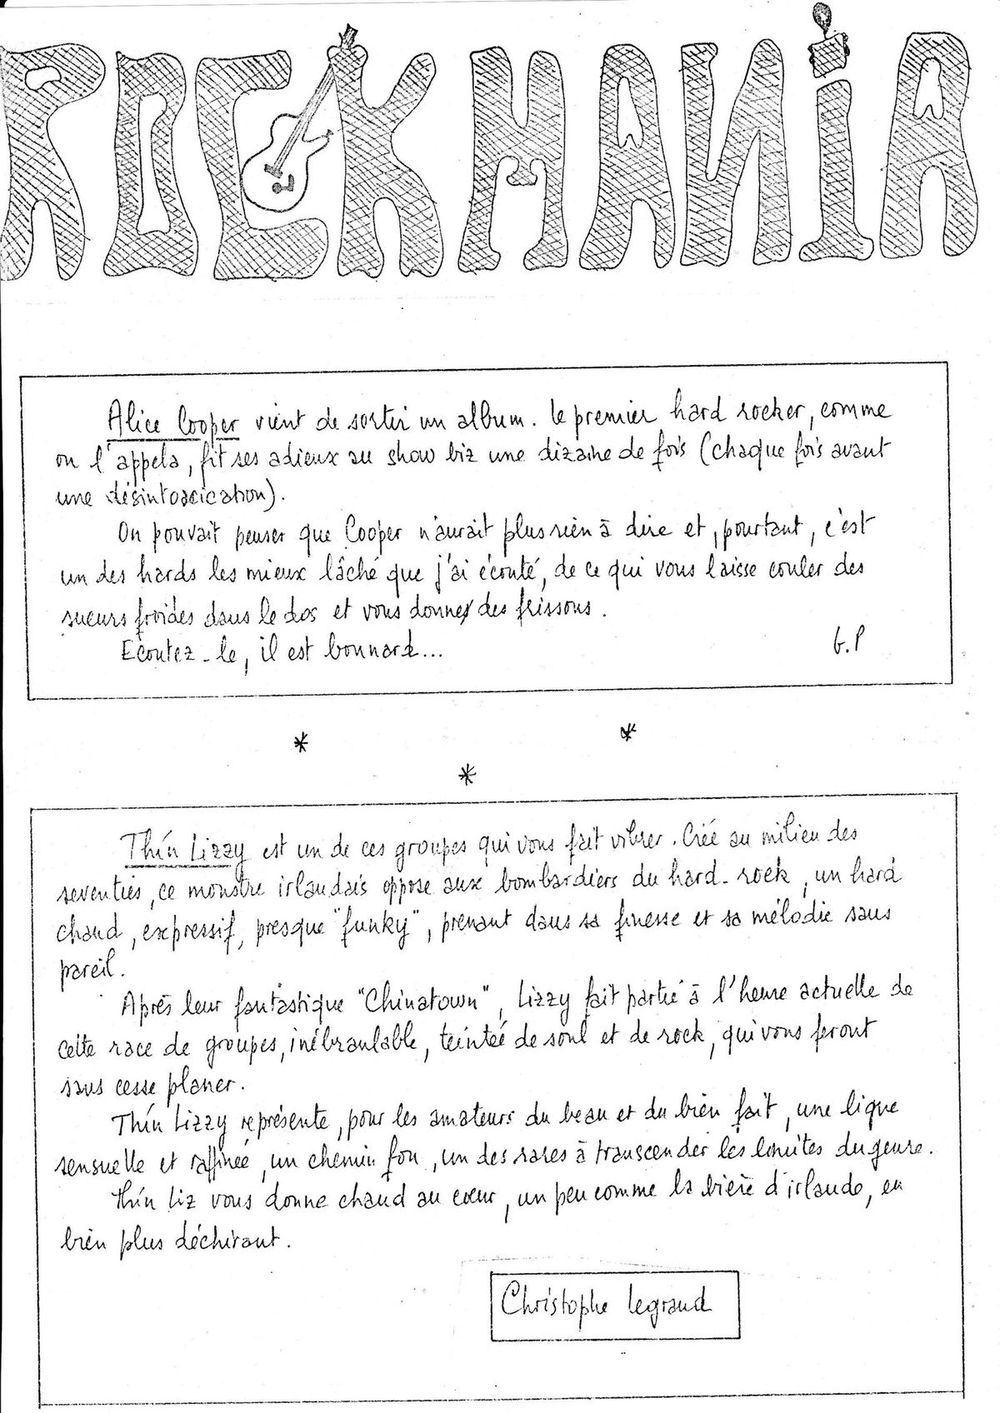 ROCK MANIA
Alice Cooper vient de sortir un album. le premier hard rocker, comme
on l'appela, fit ses adieux au show biz une dizaine de fois (chaque fois avant
une désintoxication).
On pouvait penser que Cooper n'aurait plus rien à dire et, pourtant, c'est
un des hards les mieux lâché que j'ai écouté, de ce qui vous laisse couler des
sueurs froides dans le dos et vous donne des frissons.
Ecoutez-le, il est bonnard...
G.P
* *
*
Thin Lizzy est un de ces groupes qui vous fait vibrer. Créé au milieu des
seventies, ce monstre irlandais oppose aux bombardiers du hard-rock, un hard
chaud, expressif, presque "funky", prenant dans sa finesse et sa mélodie sans
pareil.
Après leur fantastique "Chinatown", Lizzy fait partie à l'heure actuelle de
cette race de groupes, inébranlable, teintée de soul et de rock, qui vous feront
sans cesse planer.
Thin Lizzy représente, pour les amateurs du beau et du bien fait, une ligne
sensuelle et raffinée, un chemin fou, un des rares à transcender les limites du genre.
Thin Liz vous donne chaud au cœur, un peu comme la bière d'irlande, en
bien plus déchirant.
Christophe Legrand